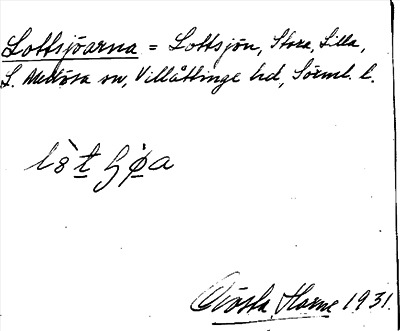 Lottsjöarna = Lottsjön, Stora, Lilla,
L. Mellösa sn, Villåttinge hd, Sörml. l.
Gösta 1931.